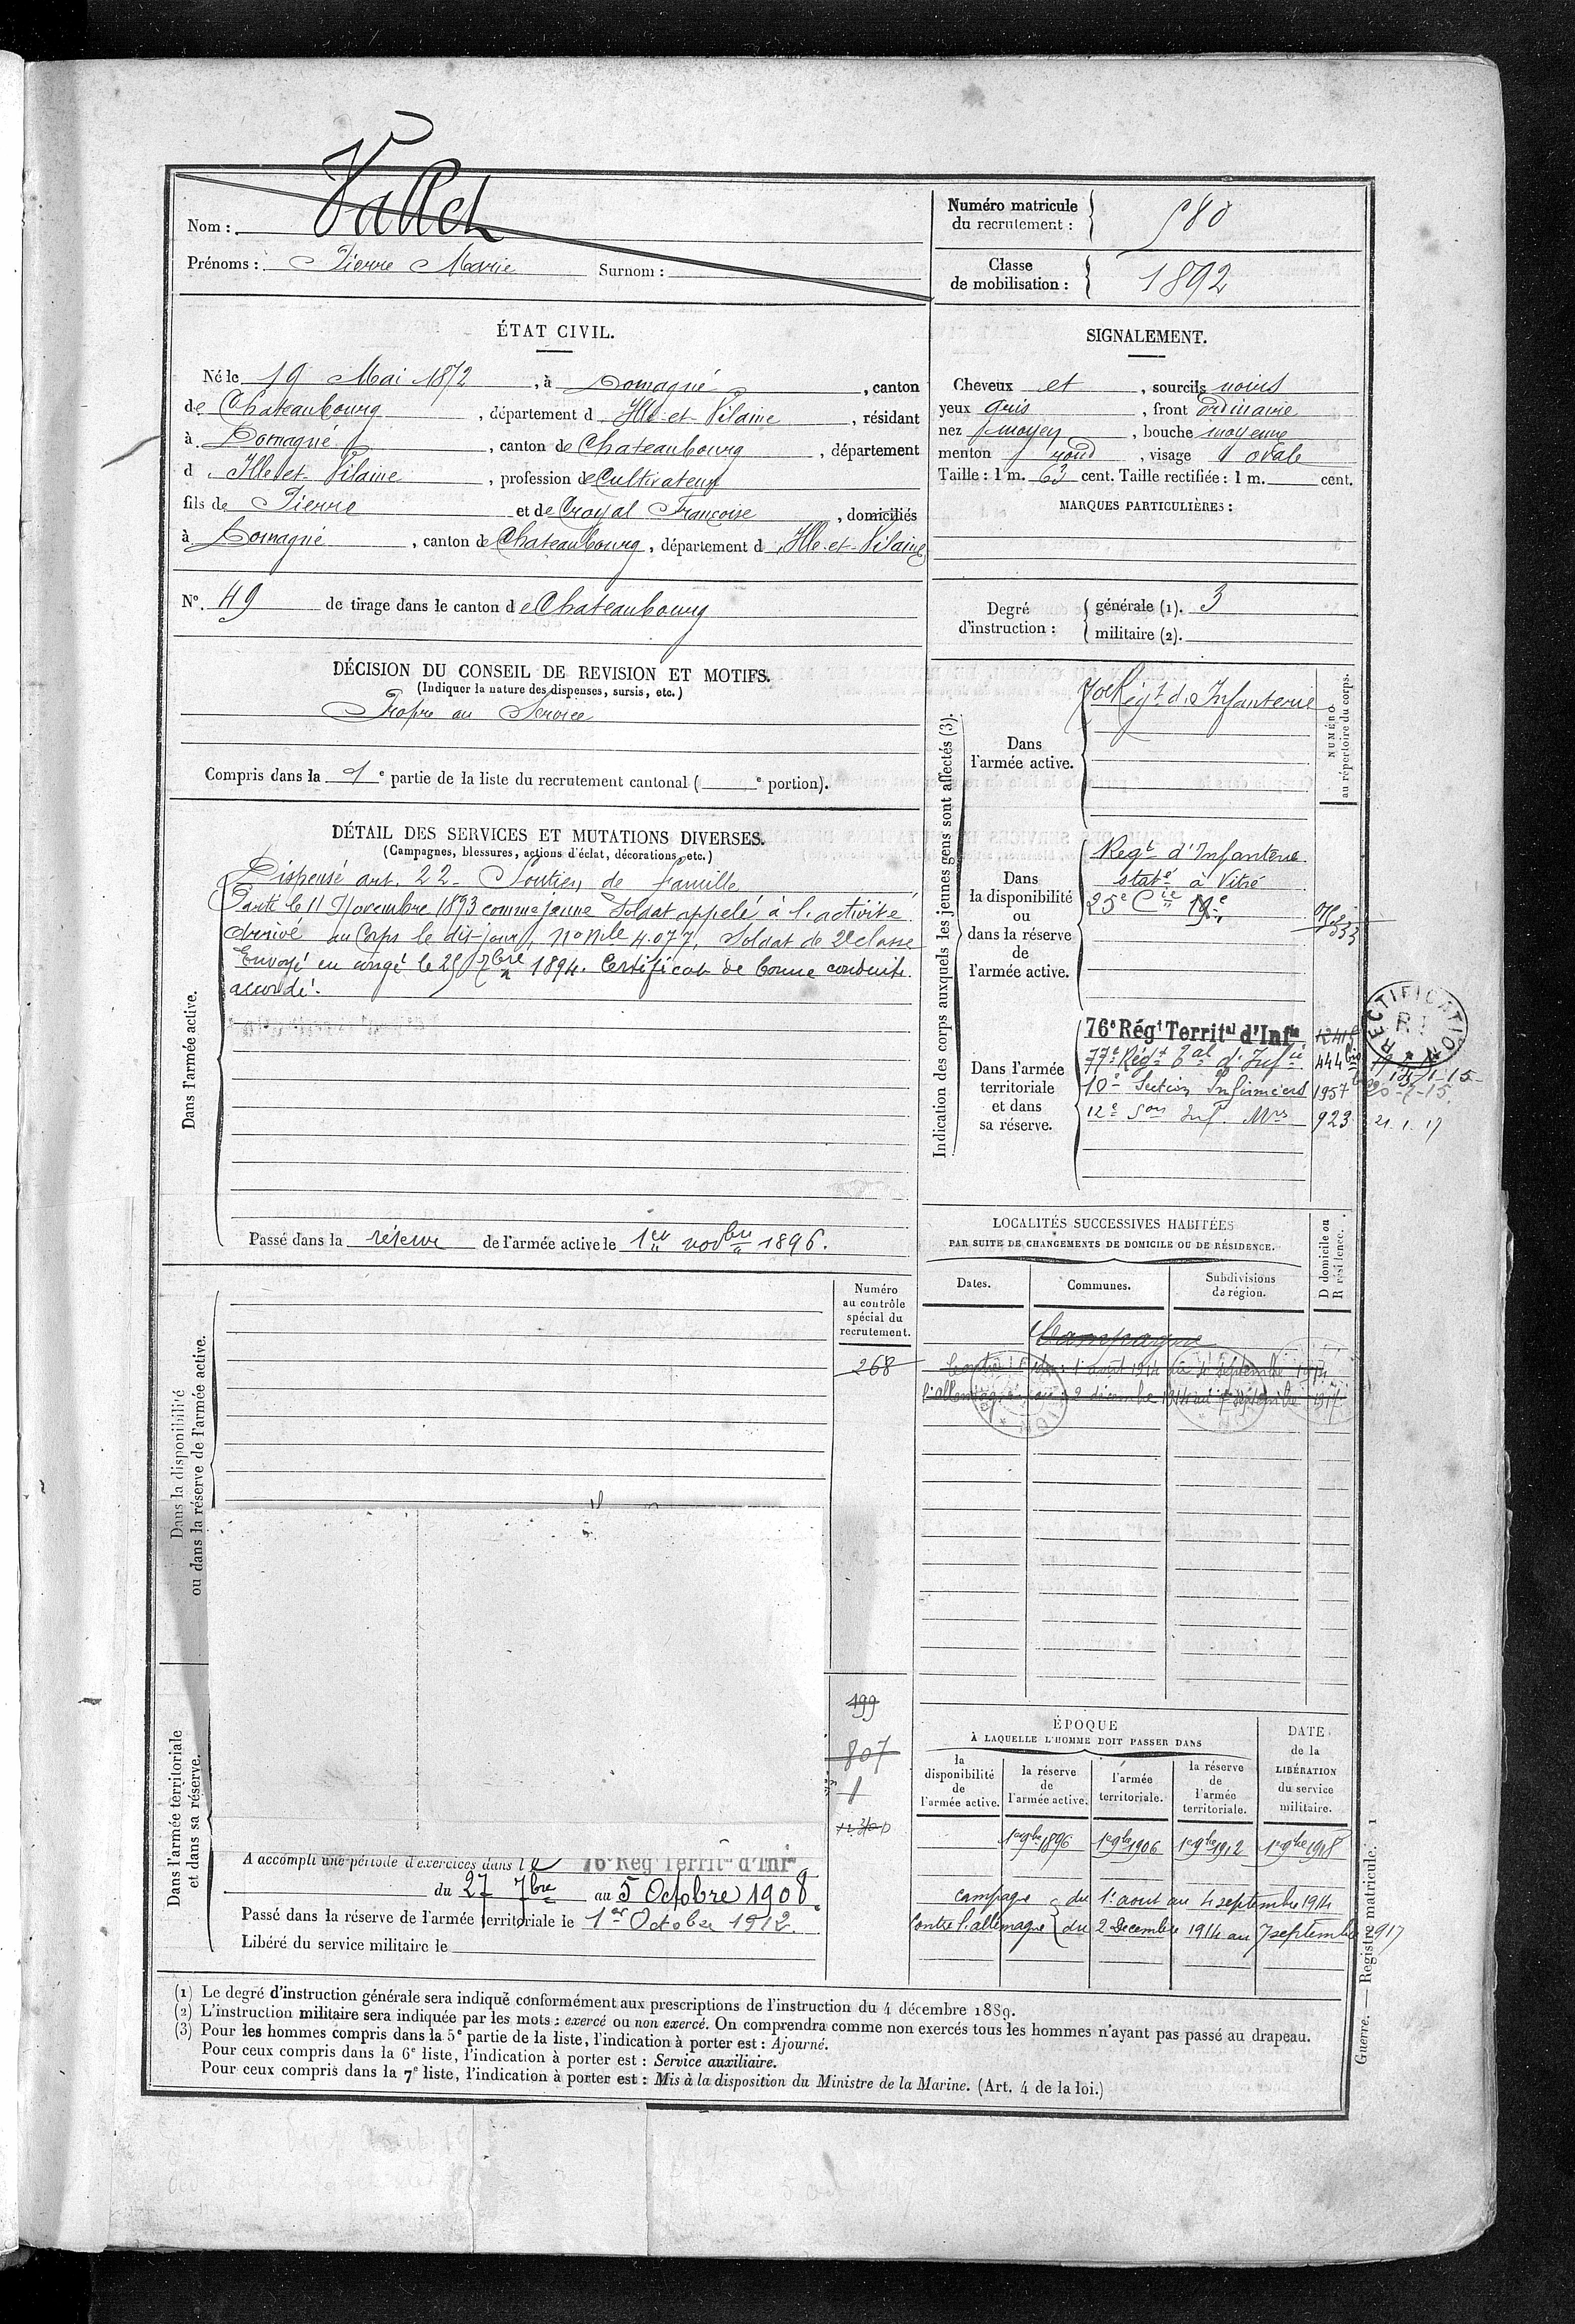 Nom : Vallet
Prénoms : Pierre Marie Surnom :
Numéro matricule du recrutement : 580
Classe de mobilisation : 1892
ÉTAT CIVIL.
Né le 19 Mai 1872, à Domagné, canton
de Chateaubourg, département d'Ille-et-Vilaine, résidant
à Domagné, canton de Chateaubourg, département
d'Ille-et-Vilaine, profession de Cultivateur
fils de Pierre et de Croyal Françoise, domiciliés
à Domagné, canton de Chateaubourg, département d'Ille-et-Vilaine
N°. 49 de tirage dans le canton de Chateaubourg
SIGNALEMENT.
Cheveux et, sourcils noirs
yeux gris, front ordinaire
nez moyen, bouche moyenne
menton rond, visage ovale
Taille : 1 m. 63 cent. Taille rectifiée : 1 m. cent.
MARQUES PARTICULIÈRES :
Degré d'instruction :
générale (1). 3
militaire (2).
DÉCISION DU CONSEIL DE REVISION ET MOTIFS.
(Indiquer la nature des dispenses, sursis, etc.)
Propre au Service
Compris dans la 1e partie de la liste du recrutement cantonal ( e portion).
DÉTAIL DES SERVICES ET MUTATIONS DIVERSES.
(Campagnes, blessures, actions d'éclat, décorations, etc.)
Dans l'armée active.
Dispensé art. 22 - Soutien de famille
Parti le 11 Novembre 1893 comme jeune Soldat appelé à l'activité.
Arrivé au Corps le dit jour, No Mle 4.077. Soldat de 2e classe
Envoyé en congé le 25 7bre 1894. Certificat de bonne conduite
accordé.
Passé dans la réserve de l'armée active le 1er novbre 1896.
Indication des corps auxquels les jeunes gens sont affectés (3).
NUMÉRO au répertoire du corps.
Dans l'armée active.
70e Régt d'Infanterie
Dans la disponibilité ou dans la réserve de l'armée active.
Regt d'Infanterie
staté à Vitré
25e Cie 19e
Dans l'armée territoriale et dans sa réserve.
76e Régt Territal d'Infie
77e Régt Tal d'Infie 444
10e Section Infirmiers 1957 20-7-15
12e Son Inf. Mres 923 21.1.17
RECTIFICATION
LOCALITÉS SUCCESSIVES HABITÉES
PAR SUITE DE CHANGEMENTS DE DOMICILE OU DE RÉSIDENCE.
Dates. Communes. Subdivisions de région. D domicile ou R résidence.
Campagne
Contre du 1 août 1914 au 4 septembre 1914
l'allemagne du 2 décembre 1914 au 7 septembre 1917
Dans la disponibilité ou dans la réserve de l'armée active.
Numéro au contrôle spécial du recrutement.
268
199
807
1
Dans l'armée territoriale et dans sa réserve.
A accompli une période d'exercices dans le 76e Régt Territal d'Infie
du 27 7bre au 5 Octobre 1908
Passé dans la réserve de l'armée territoriale le 1er Octobre 1912.
Libéré du service militaire le
ÉPOQUE
À LAQUELLE L'HOMME DOIT PASSER DANS
la disponibilité de l'armée active.
la réserve de l'armée active.
l'armée territoriale.
la réserve de l'armée territoriale.
DATE de la LIBÉRATION du service militaire.
1er 9bre 1896 1er 9bre 1906 1er 9bre 1912 1er 9bre 1918
campagne du 1er aout au 4 septembre 1914
Contre l'allemagne du 2 Decembre 1914 au 7 septembre 1917
Guerre. — Registre matricule. 1
(1) Le degré d'instruction générale sera indiqué conformément aux prescriptions de l'instruction du 4 décembre 1889.
(2) L'instruction militaire sera indiquée par les mots : exercé ou non exercé. On comprendra comme non exercés tous les hommes n'ayant pas passé au drapeau.
(3) Pour les hommes compris dans la 5e partie de la liste, l'indication à porter est : Ajourné.
Pour ceux compris dans la 6e liste, l'indication à porter est : Service auxiliaire.
Pour ceux compris dans la 7e liste, l'indication à porter est : Mis à la disposition du Ministre de la Marine. (Art. 4 de la loi.)